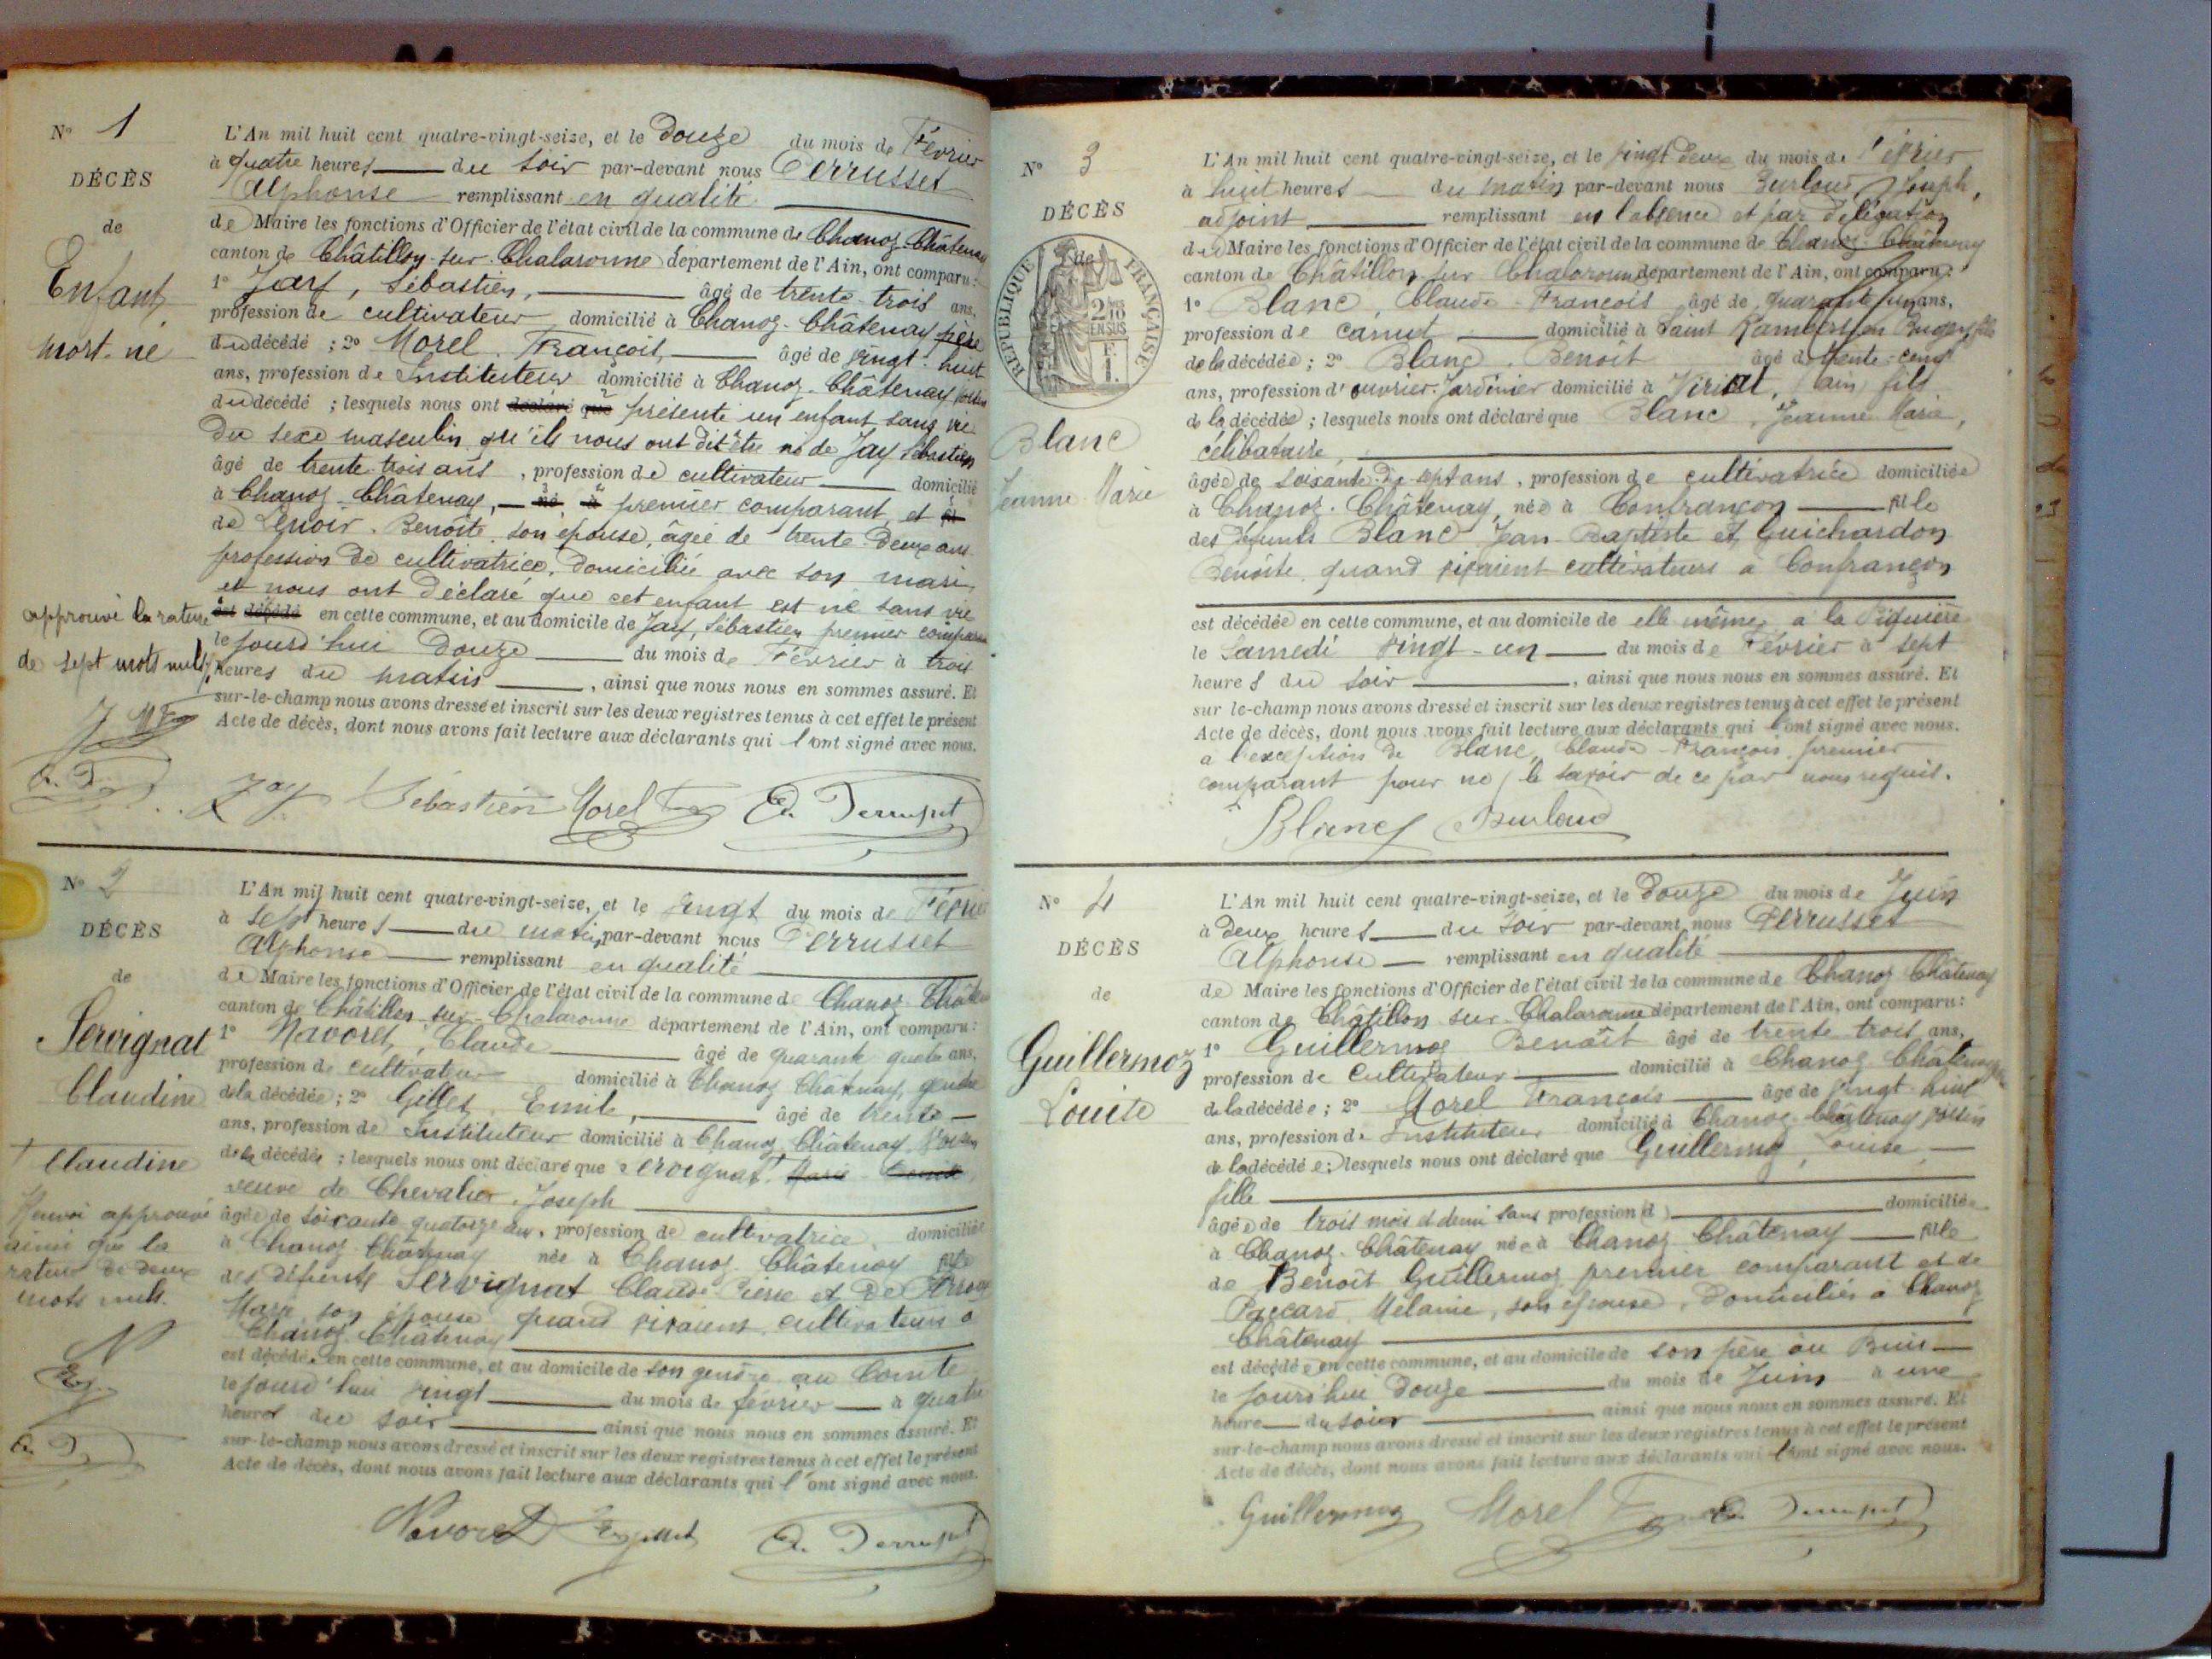 N° 1
DÉCÈS
de
Enfant
mort-né
approuvé la rature
de sept mots nuls
L'An mil huit cent quatre-vingt-seize, et le douze du mois de Février
à quatre heures du soir par-devant nous Perrusset
Alphonse remplissant en qualité
de Maire les fonctions d'Officier de l'état civil de la commune de Chanoz-Châtenay
canton de Châtillon-sur-Chalaronne département de l'Ain, ont comparu:
1° Jay, Sébastien, âgé de trente-trois ans,
profession de cultivateur domicilié à Chanoz-Châtenay père
du décédé ; 2° Morel, François, âgé de vingt-huit
ans, profession de Instituteur domicilié à Chanoz-Châtenay voisin
du décédé ; lesquels nous ont déclaré que présenté un enfant sans vie
du sexe masculin qu'ils nous ont dit être né de Jay Sébastien
âgé de trente-trois ans, profession de cultivateur domicilié
à Chanoz-Châtenay, né, à premier comparant, et
de Lenoir Benoîte, son épouse, âgée de trente-deux ans
profession de cultivatrice, domiciliée avec son mari,
et nous ont déclaré que cet enfant est né sans vie
est décédé en cette commune, et au domicile de Jay, Sébastien premier comparant
le jourd'hui douze du mois de Février à trois
heures du matin, ainsi que nous nous en sommes assuré. Et
sur-le-champ nous avons dressé et inscrit sur les deux registres tenus à cet effet le présent
Acte de décès, dont nous avons fait lecture aux déclarants qui l'ont signé avec nous.
Jay Sébastien Morel F A. Perrusset
N° 2
DÉCÈS
de
Servignat
Claudine
+ Claudine
Renvoi approuvé
ainsi que la
rature de deux
mots nuls.
L'An mil huit cent quatre-vingt-seize, et le vingt du mois de Février
à sept heures du matin par-devant nous Perrusset
Alphonse remplissant en qualité
de Maire les fonctions d'Officier de l'état civil de la commune de Chanoz-Châtenay
canton de Châtillon-sur-Chalaronne département de l'Ain, ont comparu:
1° Navoret, Claude âgé de quarante-quatre ans,
profession de cultivateur domicilié à Chanoz Châtenay, gendre
de la décédée ; 2° Gillet, Emile, âgé de trente
ans, profession de Instituteur domicilié à Chanoz Châtenay Voisin
de la décédée ; lesquels nous ont déclaré que Servignat + Marie
veuve de Chevalier, Joseph
âgée de soixante quatorze ans, profession de cultivatrice, domiciliée
à Chanoz Châtenay née à Chanoz Châtenay fille
des défunts Servignat Claude Pierre et de
Marie son épouse quand vivaient cultivateurs à
Chanoz Châtenay
est décédée en cette commune, et au domicile de son gendre au Comte
le jourd'hui vingt du mois de février à quatre
heures du soir ainsi que nous nous en sommes assuré. Et
sur-le-champ nous avons dressé et inscrit sur les deux registres tenus à cet effet le présent
Acte de décès, dont nous avons fait lecture aux déclarants qui l'ont signé avec nous.
Navoret A. Perrusset
N° 3
DÉCÈS
de
RÉPUBLIQUE FRANÇAISE
2/10
EN SUS
Blanc
Jeanne Marie
L'An mil huit cent quatre-vingt-seize, et le vingt-deux du mois de Février
à huit heures du matin par-devant nous Burloud, Joseph,
adjoint remplissant en l'absence et par délégation
du Maire les fonctions d'Officier de l'état civil de la commune de Chanoz-Châtenay
canton de Châtillon-sur-Chalaronne département de l'Ain, ont comparu:
1° Blanc, Claude-François âgé de ans,
profession de domicilié à Saint Rambert en Bugey fils
de la décédée ; 2° Blanc, Benoît âgé de trente-cinq
ans, profession d'ouvrier-Jardinier domicilié à Viriat, (ain) fils
de la décédée ; lesquels nous ont déclaré que Blanc, Jeanne Marie,
célibataire,
âgée de soixante-dix-sept ans, profession de cultivatrice domiciliée
à Chanoz-Châtenay, née à Confrançon fille
des défunts Blanc Jean-Baptiste et Guichardon
Benoîte quand vivaient cultivateurs à Confrançon
est décédée en cette commune, et au domicile de elle même, à la
le Samedi vingt-un du mois de Février à sept
heures du soir, ainsi que nous nous en sommes assuré. Et
sur-le-champ nous avons dressé et inscrit sur les deux registres tenus à cet effet le présent
Acte de décès, dont nous avons fait lecture aux déclarants qui l'ont signé avec nous.
à l'exception de Blanc, Claude-François premier
comparant pour ne le savoir de ce par nous requis.
Blanc Burloud
N° 4
DÉCÈS
de
Guillermoz
Louise
L'An mil huit cent quatre-vingt-seize, et le douze du mois de Juin
à deux heures du soir par-devant nous Perrusset
Alphonse remplissant en qualité
de Maire les fonctions d'Officier de l'état civil de la commune de Chanoz Châtenay
canton de Châtillon-sur-Chalaronne département de l'Ain, ont comparu:
1° Guillermoz Benoît âgé de trente-trois ans,
profession de Cultivateur domicilié à Chanoz Châtenay
de la décédée ; 2° Morel François âgé de vingt-huit
ans, profession de Instituteur domicilié à Chanoz-Châtenay voisin
de la décédée ; lesquels nous ont déclaré que Guillermoz, Louise,
fille
âgée de trois mois et demi sans profession d domiciliée
à Chanoz-Châtenay née à Chanoz Châtenay fille
de Benoît Guillermoz premier comparant et de
Paccard Mélanie, son épouse, domiciliés à Chanoz
Châtenay
est décédée en cette commune, et au domicile de son père au Buis
le jourd'hui douze du mois de Juin à une
heure du soir ainsi que nous nous en sommes assuré. Et
sur-le-champ nous avons dressé et inscrit sur les deux registres tenus à cet effet le présent
Acte de décès, dont nous avons fait lecture aux déclarants qui l'ont signé avec nous.
Guillermoz Morel F A. Perrusset